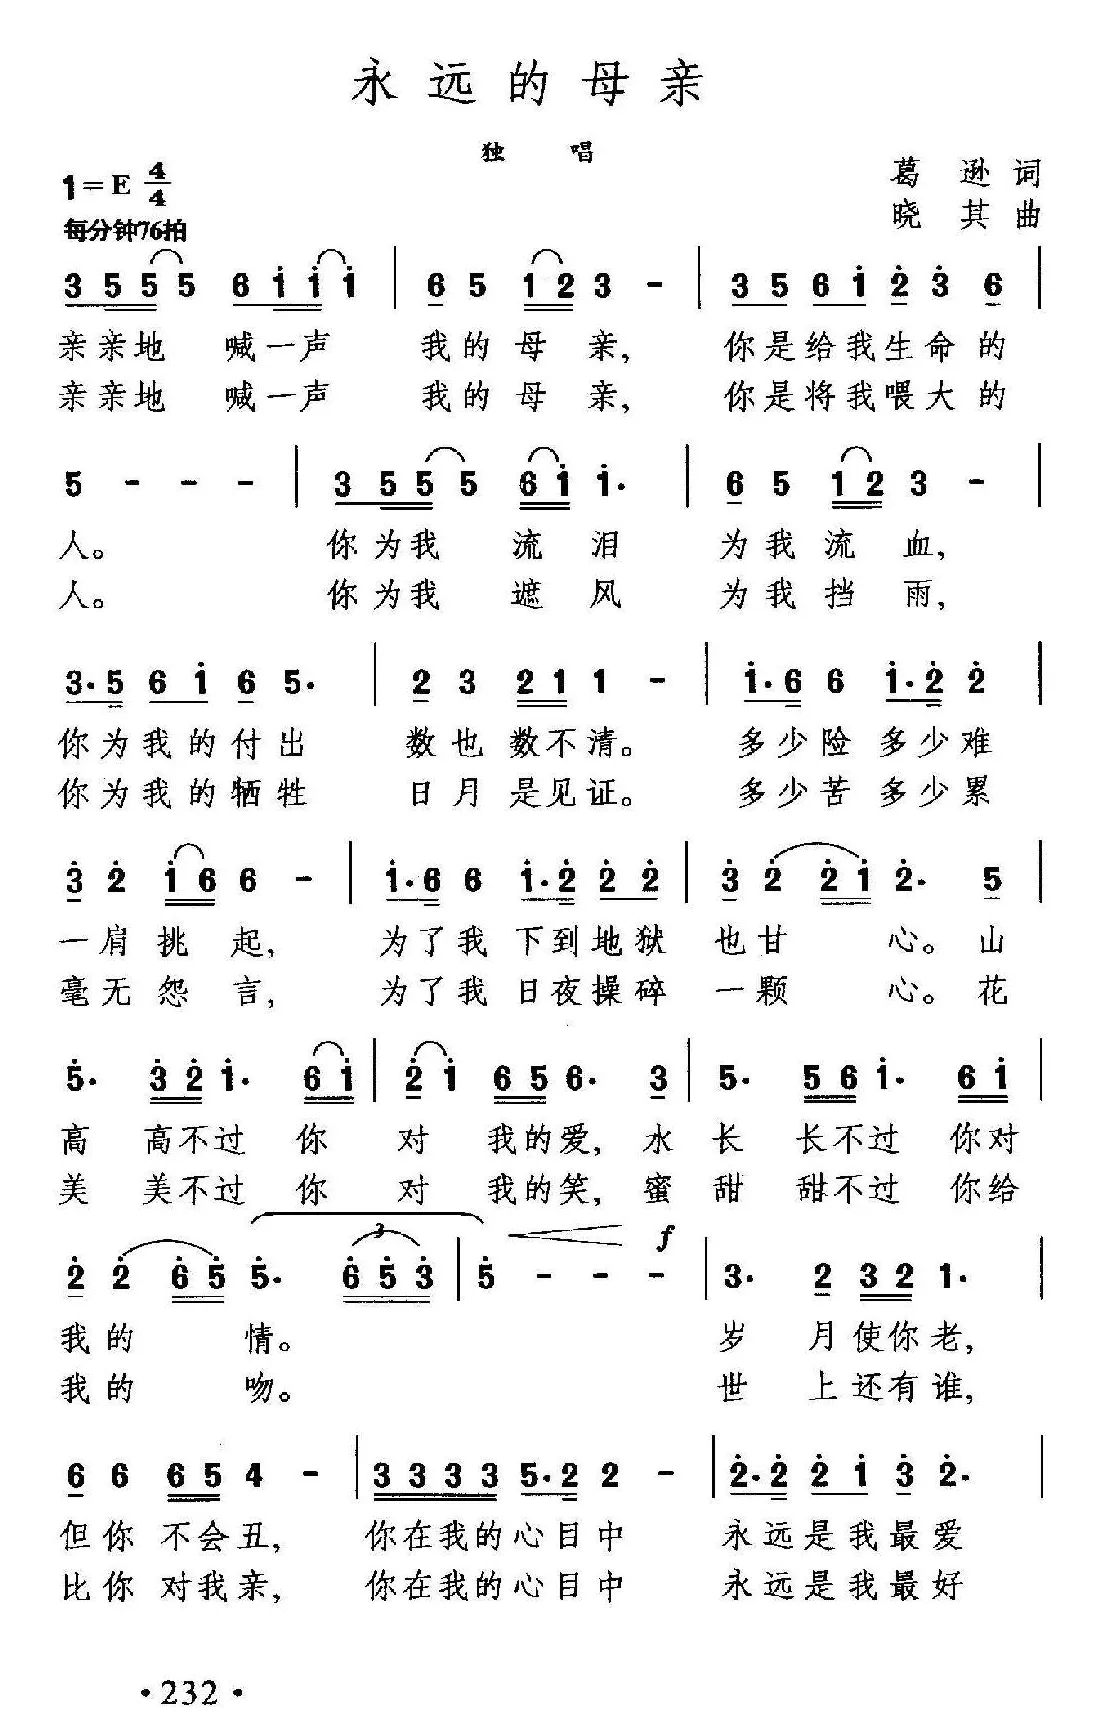 永远的母亲
独 唱
1=E 4/4
葛 逊 词
每分钟76拍
晓 其 曲
3 5 5 5 6 1 1 1 | 6 5 1 2 3 - | 3 5 6 1 2 3 6 |
亲亲地 喊一声 我的母 亲, 你是给我生命的
亲亲地 喊一声 我的母 亲, 你是将我喂大的
5 - - - | 3 5 5 5 6 1 1· | 6 5 1 2 3 - |
人。 你为我 流 泪 为我流 血,
人。 你为我 遮 风 为我挡 雨,
3·5 6 1 6 5· | 2 3 2 1 1 - | 1·6 6 1·2 2 |
你为我的付出 数也数不清。 多少险多少难
你为我的牺牲 日月是见证。 多少苦多少累
3 2 1 6 6 - | 1·6 6 1·2 2 2 | 3 2 2 1 2· 5 |
一肩挑 起, 为了我 下到地狱 也甘 心。山
毫无怨 言, 为了我 日夜操碎 一颗 心。花
5· 3 2 1· 6 1 | 2 1 6 5 6· 3 | 5· 5 6 1· 6 1 |
高 高不过 你 对 我的爱, 水 长 长不过 你对
美 美不过 你 对 我的笑, 蜜 甜 甜不过 你给
3 f
2 2 6 5 5· 6 5 3 | 5 - - - | 3· 2 3 2 1· |
我的 情。 岁 月使你老,
我的 吻。 世 上还有谁,
6 6 6 5 4 - | 3 3 3 3 5·2 2 - | 2·2 2 1 3 2· |
但你 不会丑, 你在我的心目中 永远是我最爱
比你 对我亲, 你在我的心目中 永远是我最好
·232·